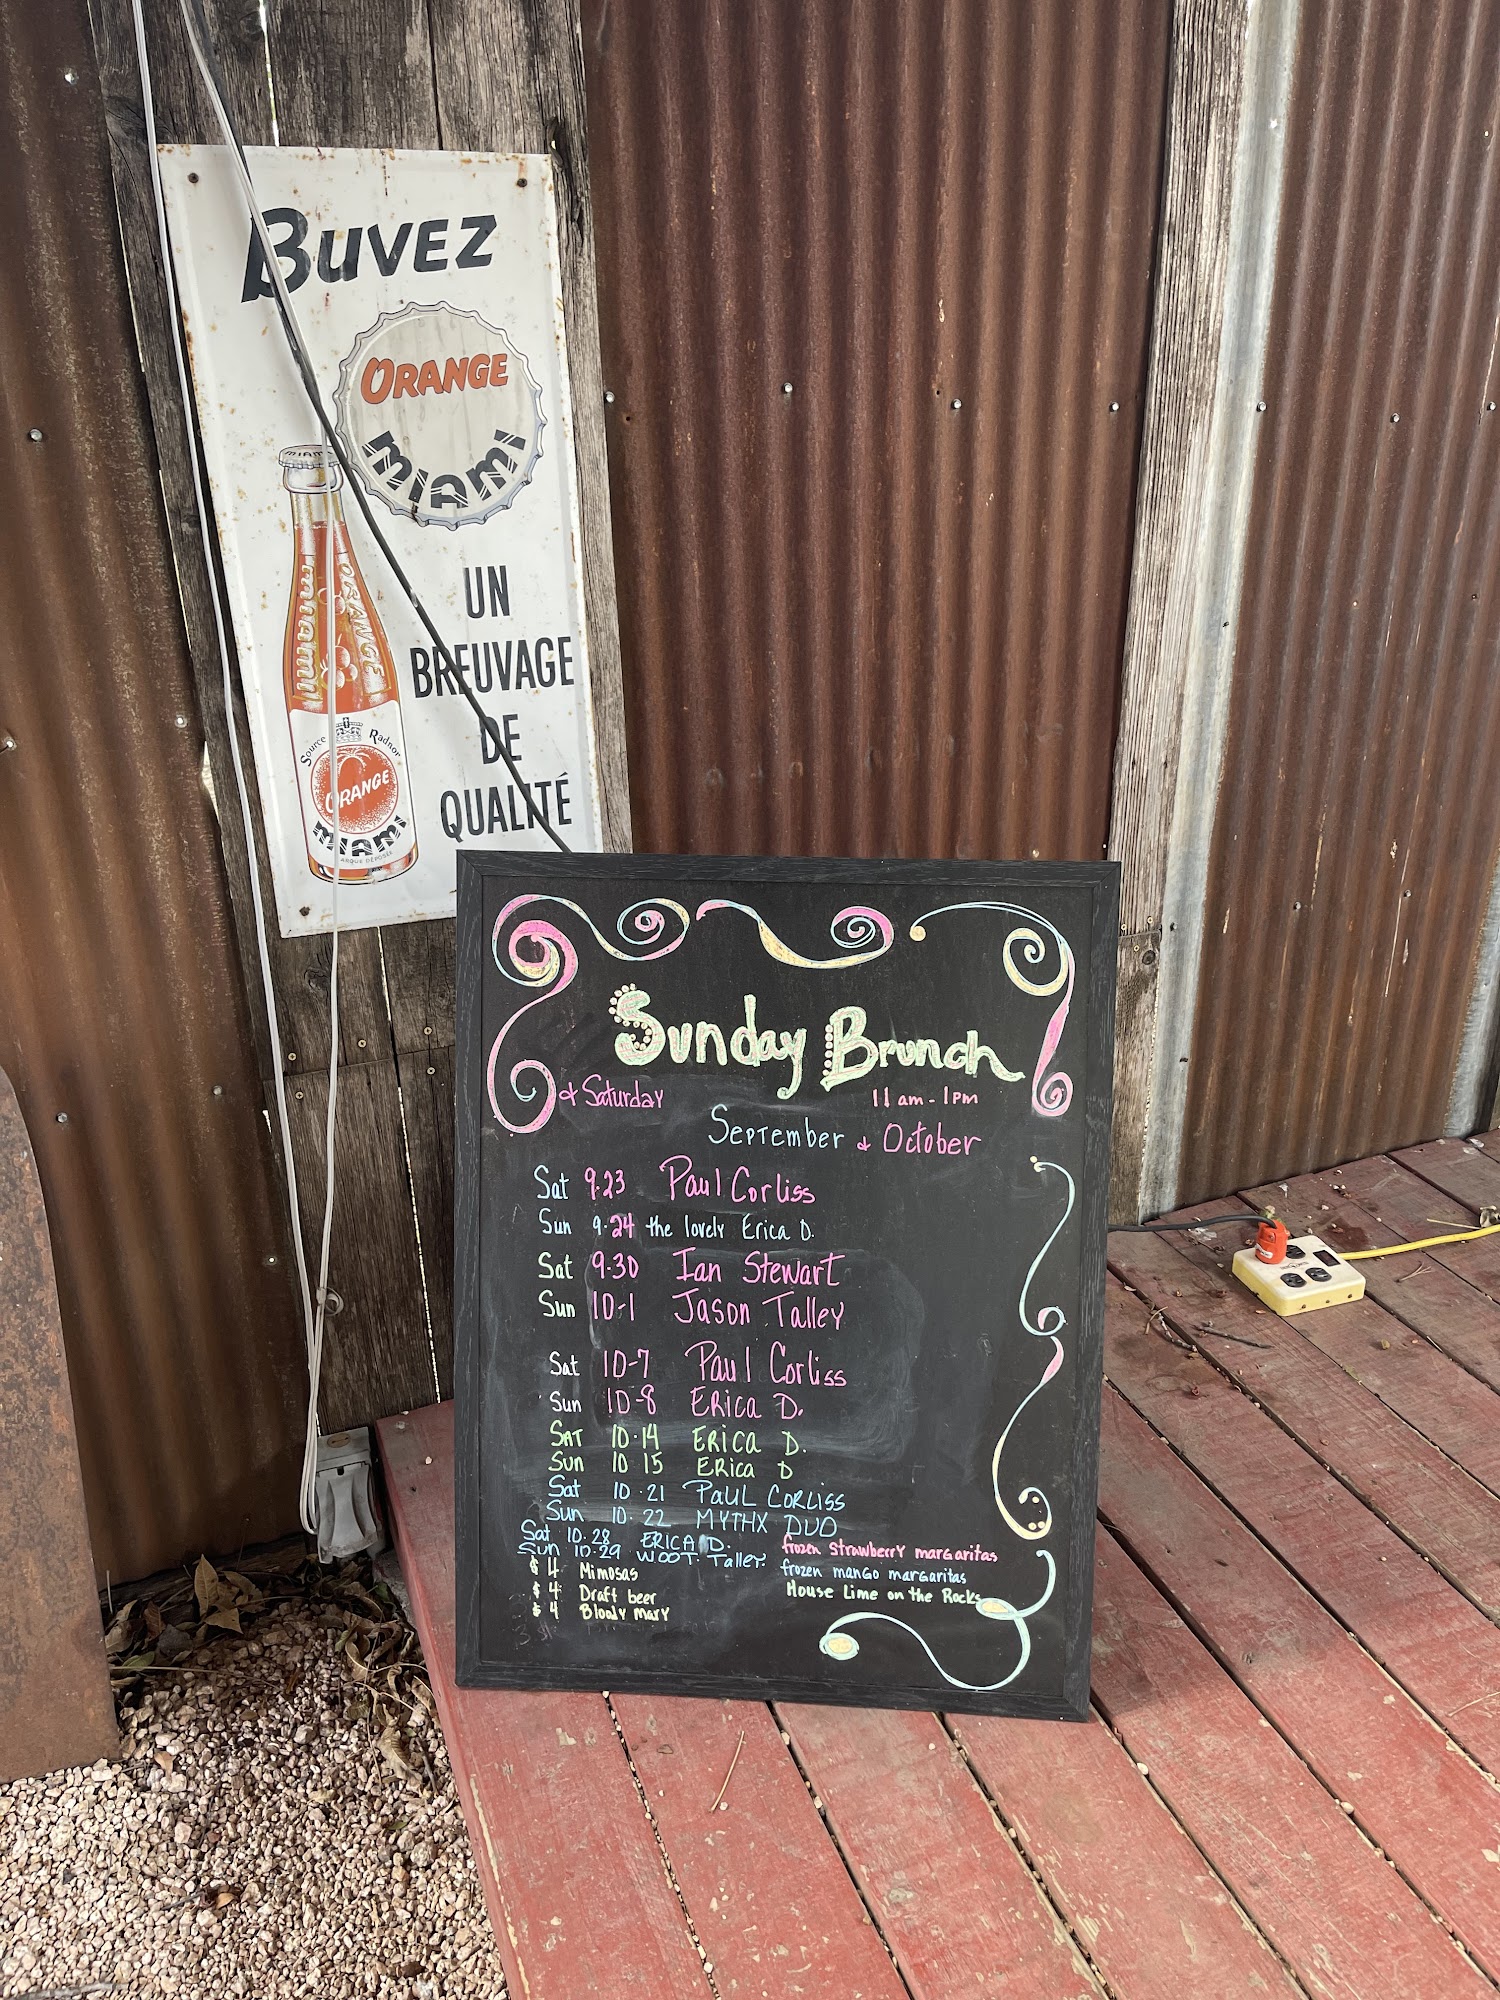 BUVEZ
ORANGE
MIAMI
MIAMI
UN
BREUVAGE
DE
QUALITÉ
MIAMI ORANGE
Source Radnor
ORANGE
MIAMI
Sunday Brunch
& Saturday 11am - 1pm
September & October
Sat 9.23 Paul Corliss
Sun 9.24 the lovely Erica D.
Sat 9.30 Ian Stewart
Sun 10-1 Jason Talley
Sat 10-7 Paul Corliss
Sun 10-8 Erica D.
SAT 10.14 ERICA D.
Sun 10 15 ERica D
Sat 10.21 PAUL CORLISS
Sun 10.22 MYTHX DUO
Sat 10.28 ERICA D.
Sun 10.29 WOOT. Talley.
$4 Mimosas
$4 Draft beer
$4 Bloody Mary
frozen Strawberry margaritas
frozen mango margaritas
House Lime on the Rocks